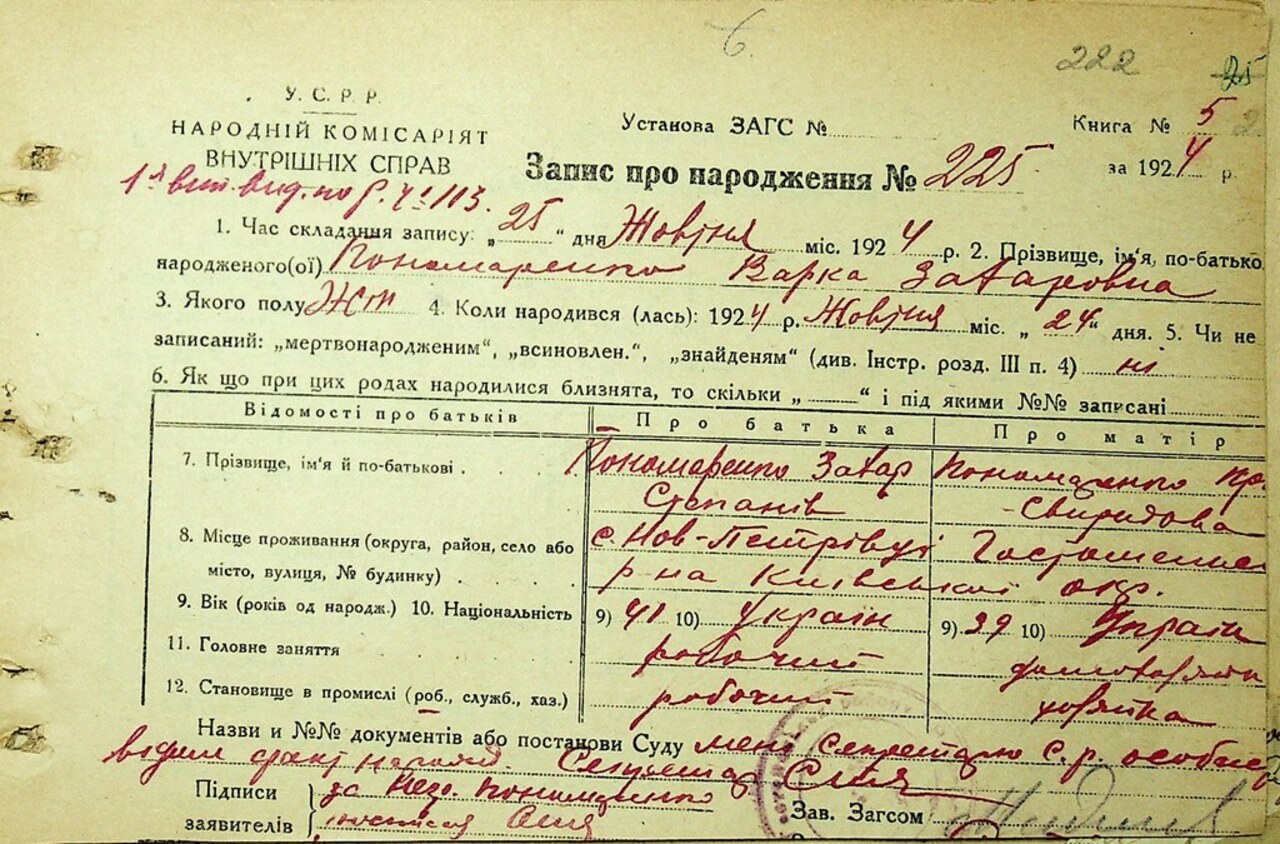 6.
222
25
У. С. Р. Р.
НАРОДНІЙ КОМІСАРІЯТ
ВНУТРІШНІХ СПРАВ
Установа ЗАГС №
Книга № 5
за 1924 р.
Запис про народження № 225
1. Час складання запису: „25“ дня Жовтня міс. 1924 р. 2. Прізвище, ім'я, по-батькo
народженого(ої) Пономаренко Варка Захаровна
3. Якого полу Жін 4. Коли народився (лась): 1924 р. Жовтня міс. „24“ дня. 5. Чи не
записаний: „мертвонародженим“, „всиновлен.“, „знайденям“ (див. Інстр. розд. III п. 4) ні
6. Як що при цих родах народилися близнята, то скільки „ “ і під якими №№ записані
Відомості про батьків Про батька Про матір
7. Прізвище, ім'я й по-батькові . Пономаренко Захар Пономаренко
Степанів Свиридова
8. Місце проживання (округа, район, село або с. Нов-Петрівці
місто, вулиця, № будинку) . . . р-на Київської окр.
9. Вік (років од народж.) 10. Національність 9) 41 10) Україн 9) 39 10) Україн
11. Головне заняття робочий
12. Становище в промислі (роб., служб., хаз.) робочий хозяйка
Назви и №№ документів або постанови Суду мені Секретарю С.р. особисто
Підписи за Пономаренко
заявителів
Зав. Загсом